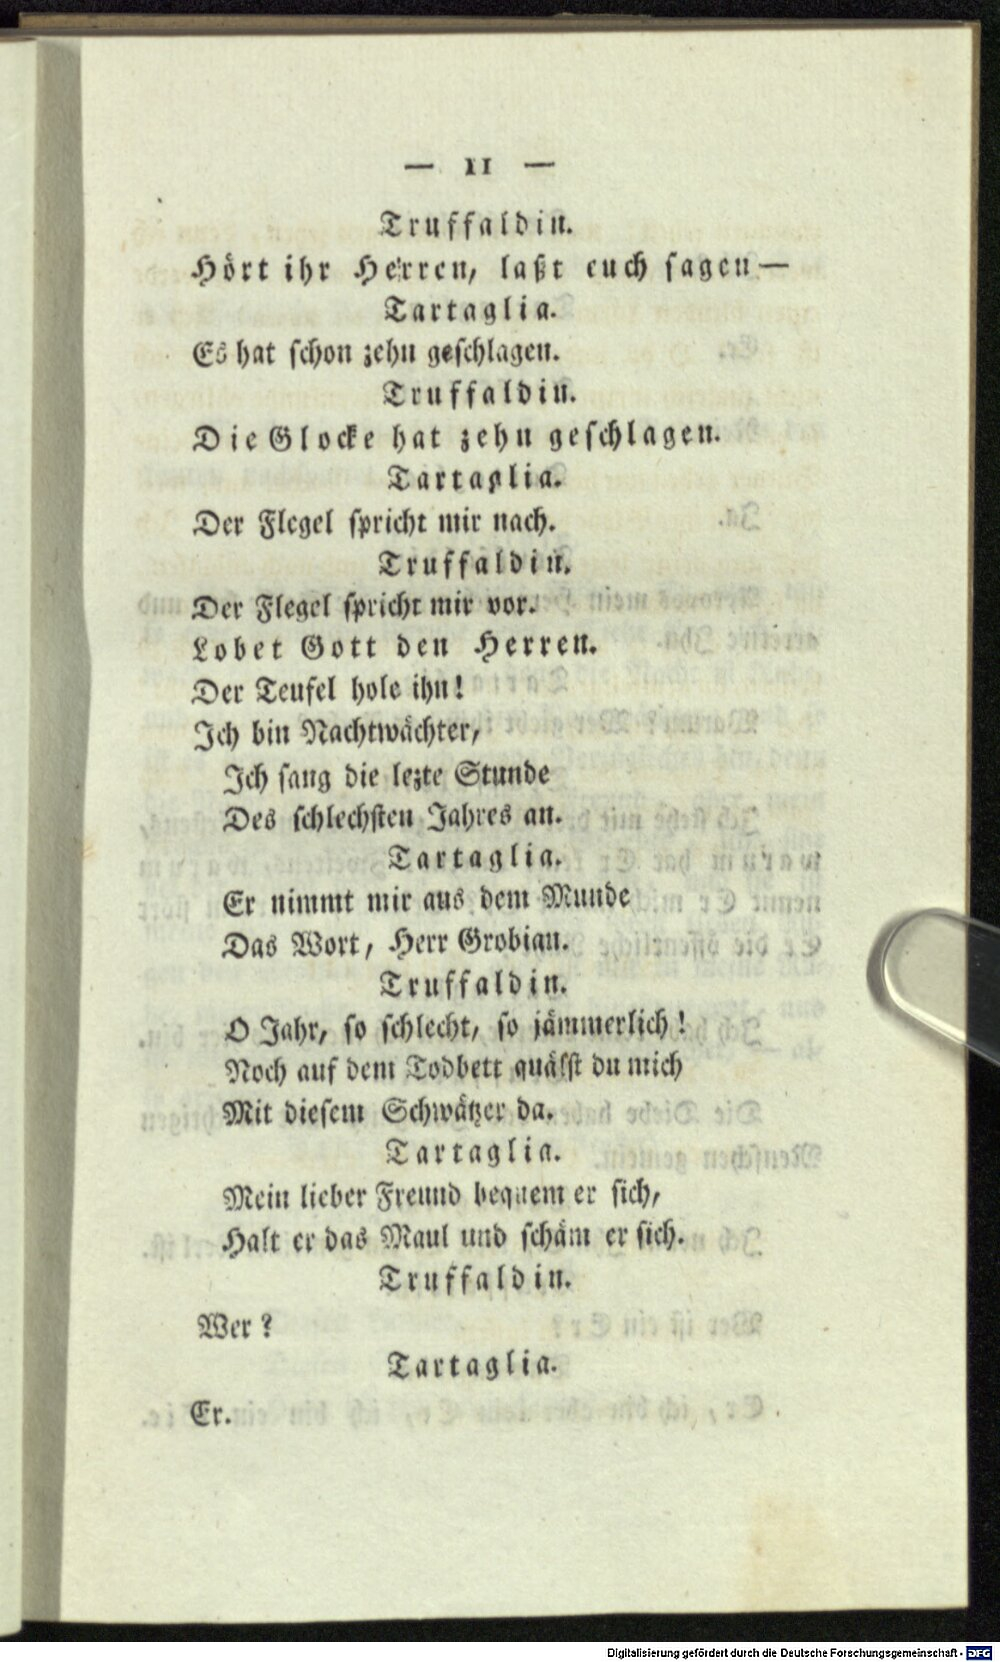 — 11 —
Truffaldin.
Hört ihr Herren, laßt euch sagen—
Tartaglia.
Es hat schon zehn geschlagen.
Truffaldin.
Die Glocke hat zehn geschlagen.
Tartaglia.
Der Flegel spricht mir nach.
Truffaldin.
Der Flegel spricht mir vor.
Lobet Gott den Herren.
Der Teufel hole ihn!
Ich bin Nachtwächter,
Ich sang die lezte Stunde
Des schlechsten Jahres an.
Tartaglia.
Er nimmt mir aus dem Munde
Das Wort, Herr Grobian.
Truffaldin.
O Jahr, so schlecht, so jämmerlich!
Noch auf dem Todbett quälst du mich
Mit diesem Schwätzer da.
Tartaglia.
Mein lieber Freund bequem er sich,
Halt er das Maul und schäm er sich.
Truffaldin.
Wer?
Tartaglia.
Er.
Digitalisierung gefördert durch die Deutsche Forschungsgemeinschaft - DFG